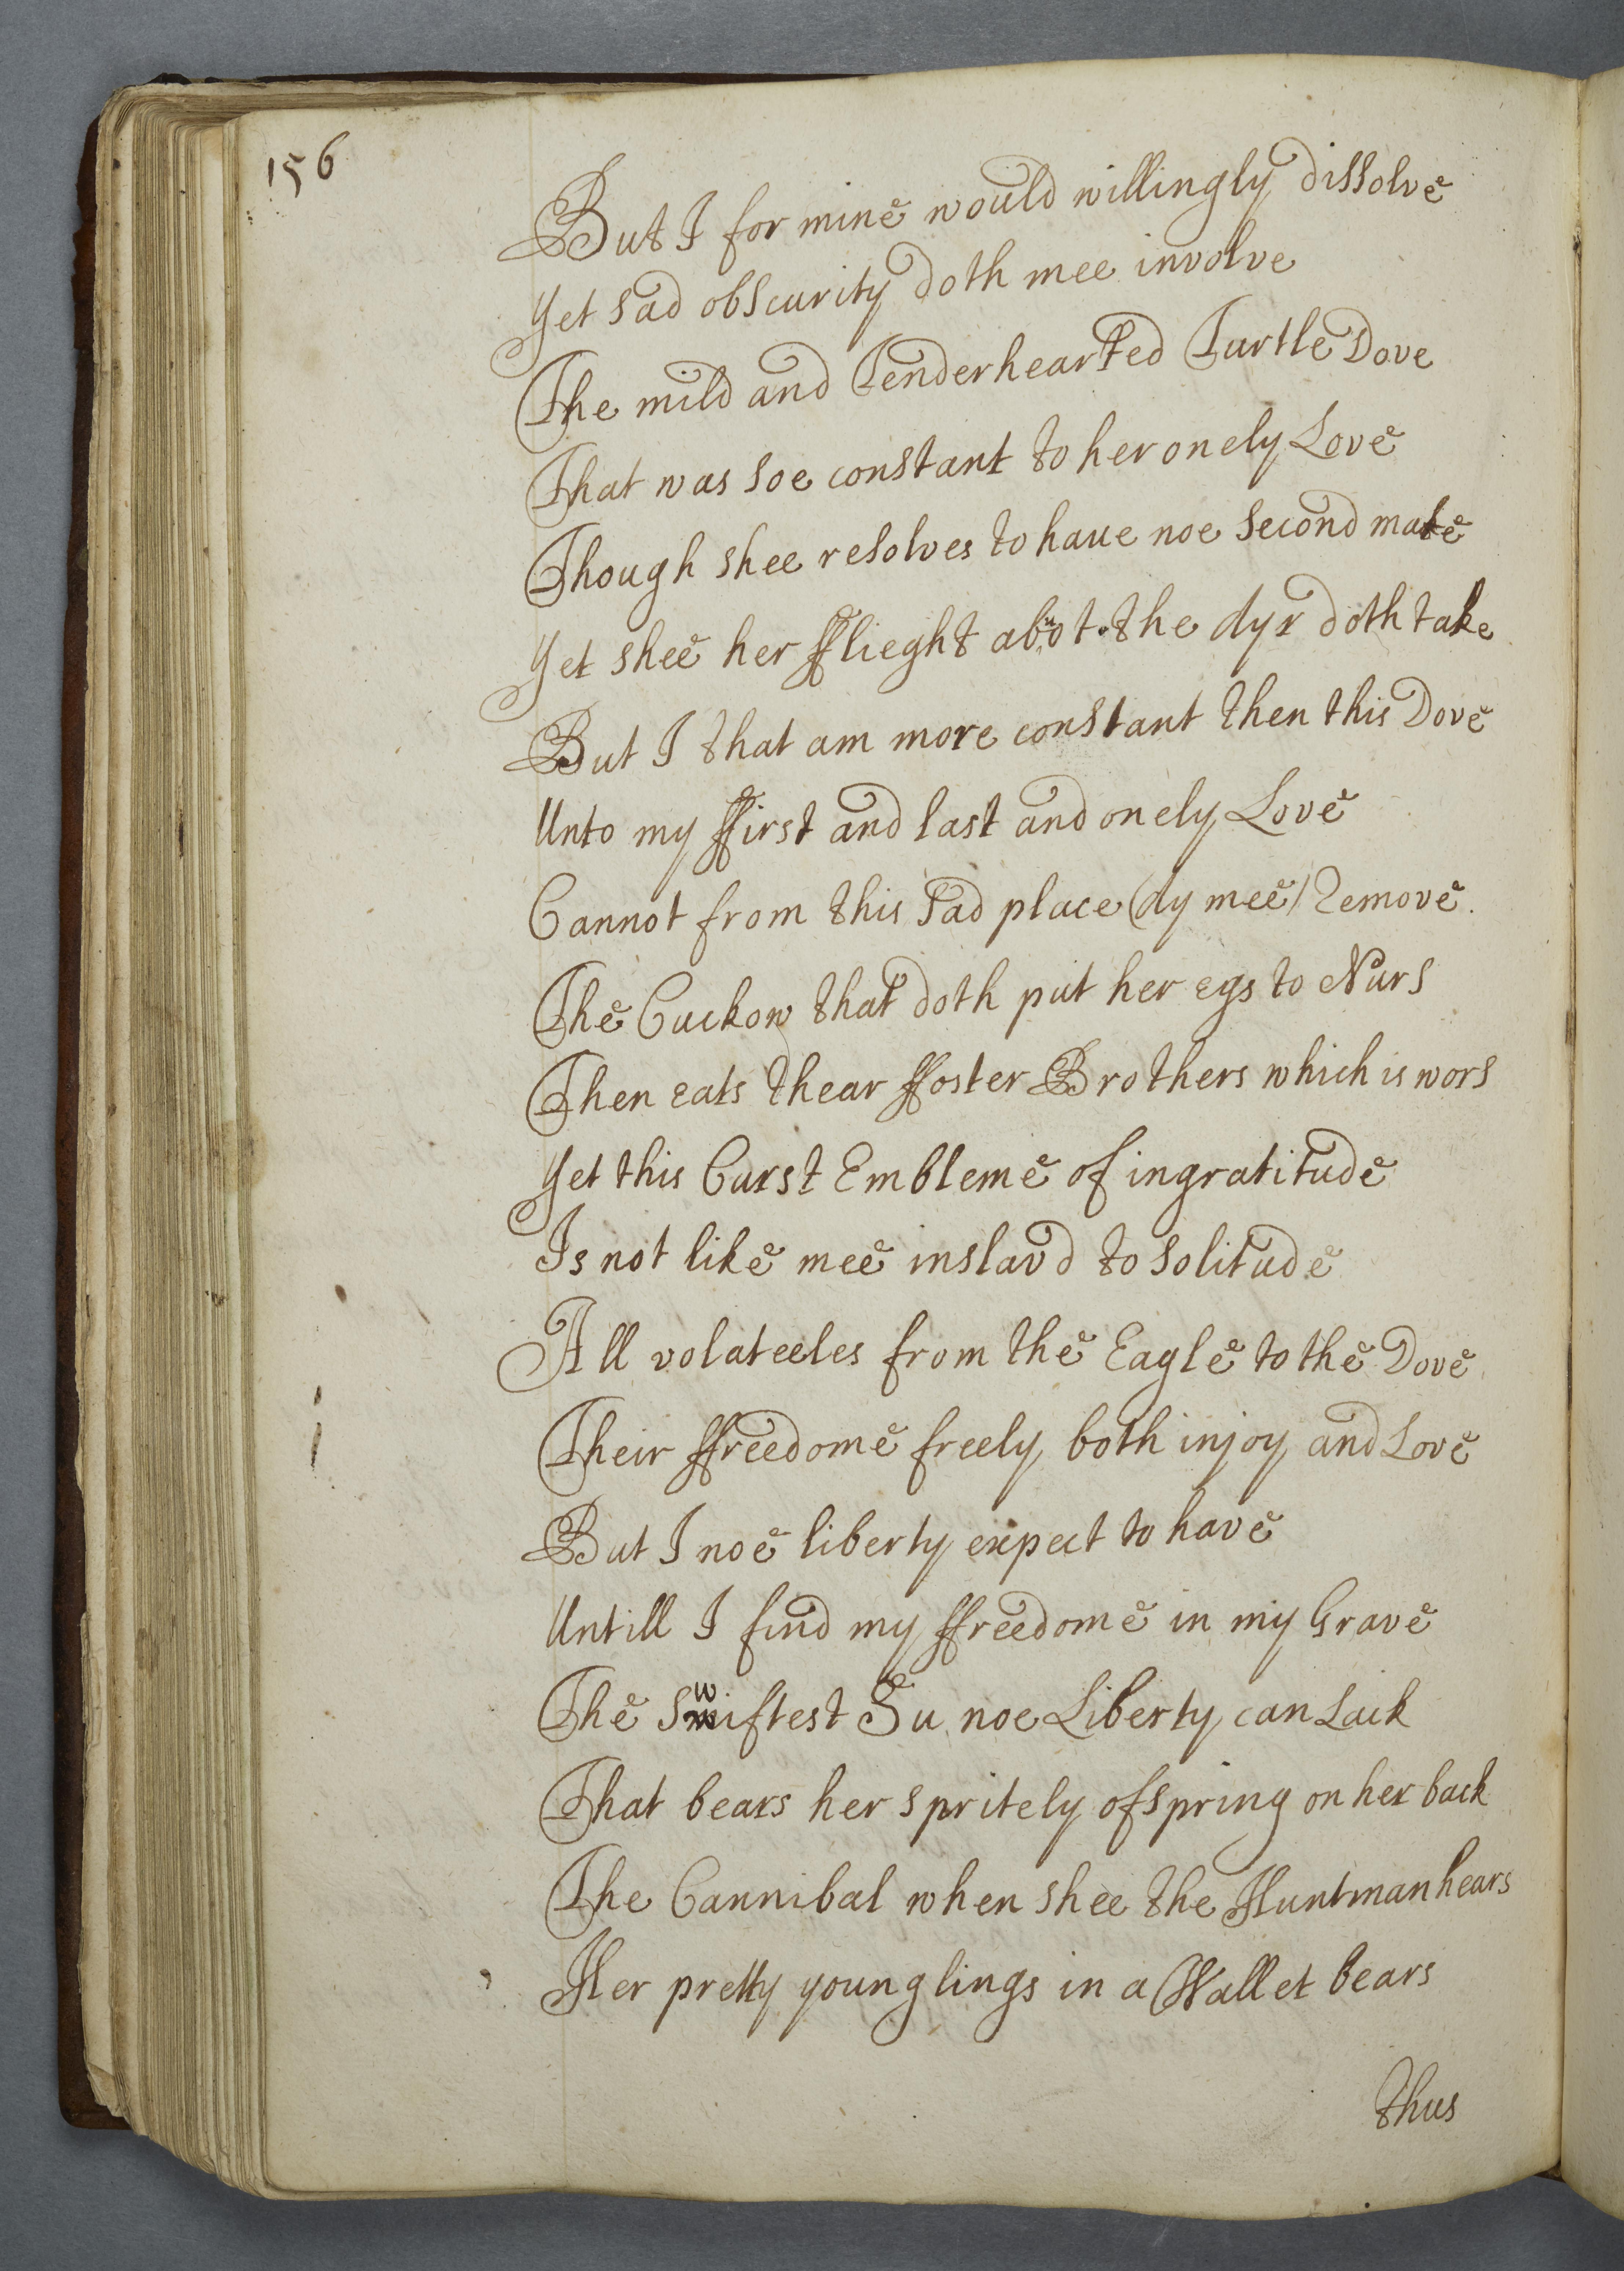 156
But I for mine would willingly dissolve
Yet sad obscurity doth mee involve
The mild and Tenderhearted Turtle Dove
That was soe constant to her onely Love
Though shee resolves to haue noe second mate
Yet shee her fflieght the ayr doth take
But I that am more constant then this Dove
Unto my ffirst and last and onely Love
Cannot from this sad place (ay mee) Remove.
The Cuckow that doth put her egs to Nurs
Then eats thear ffoster Brothers which is wors
Yet this Curst Embleme of ingratitude
Is not like mee inslavd to solitude
All volateeles from the Eagle to the Dove
Their ffreedome freely both injoy and Love
But I noe liberty expect to have
Untill I find my ffreedome in my Grave
The Swiftest Su noe Liberty can Lack
That bears her spritely ofspring on her back
The Cannibal when shee the Huntman hears
Her pretty younglings in a Wallet bears
thus